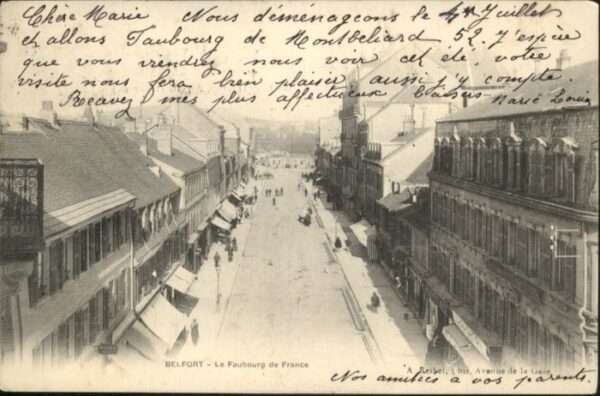 Chère Marie Nous déménageons le 4 Juillet
et allons Faubourg de Montbéliard 52. J'espère
que vous viendrez nous voir cet été votre
visite nous fera bien plaisir aussi j'y compte.
Recevez mes plus affectueux baisers Marie Louise
BELFORT - Le Faubourg de France
bis, Avenue de la Gare
Nos amitiés a vos parents.